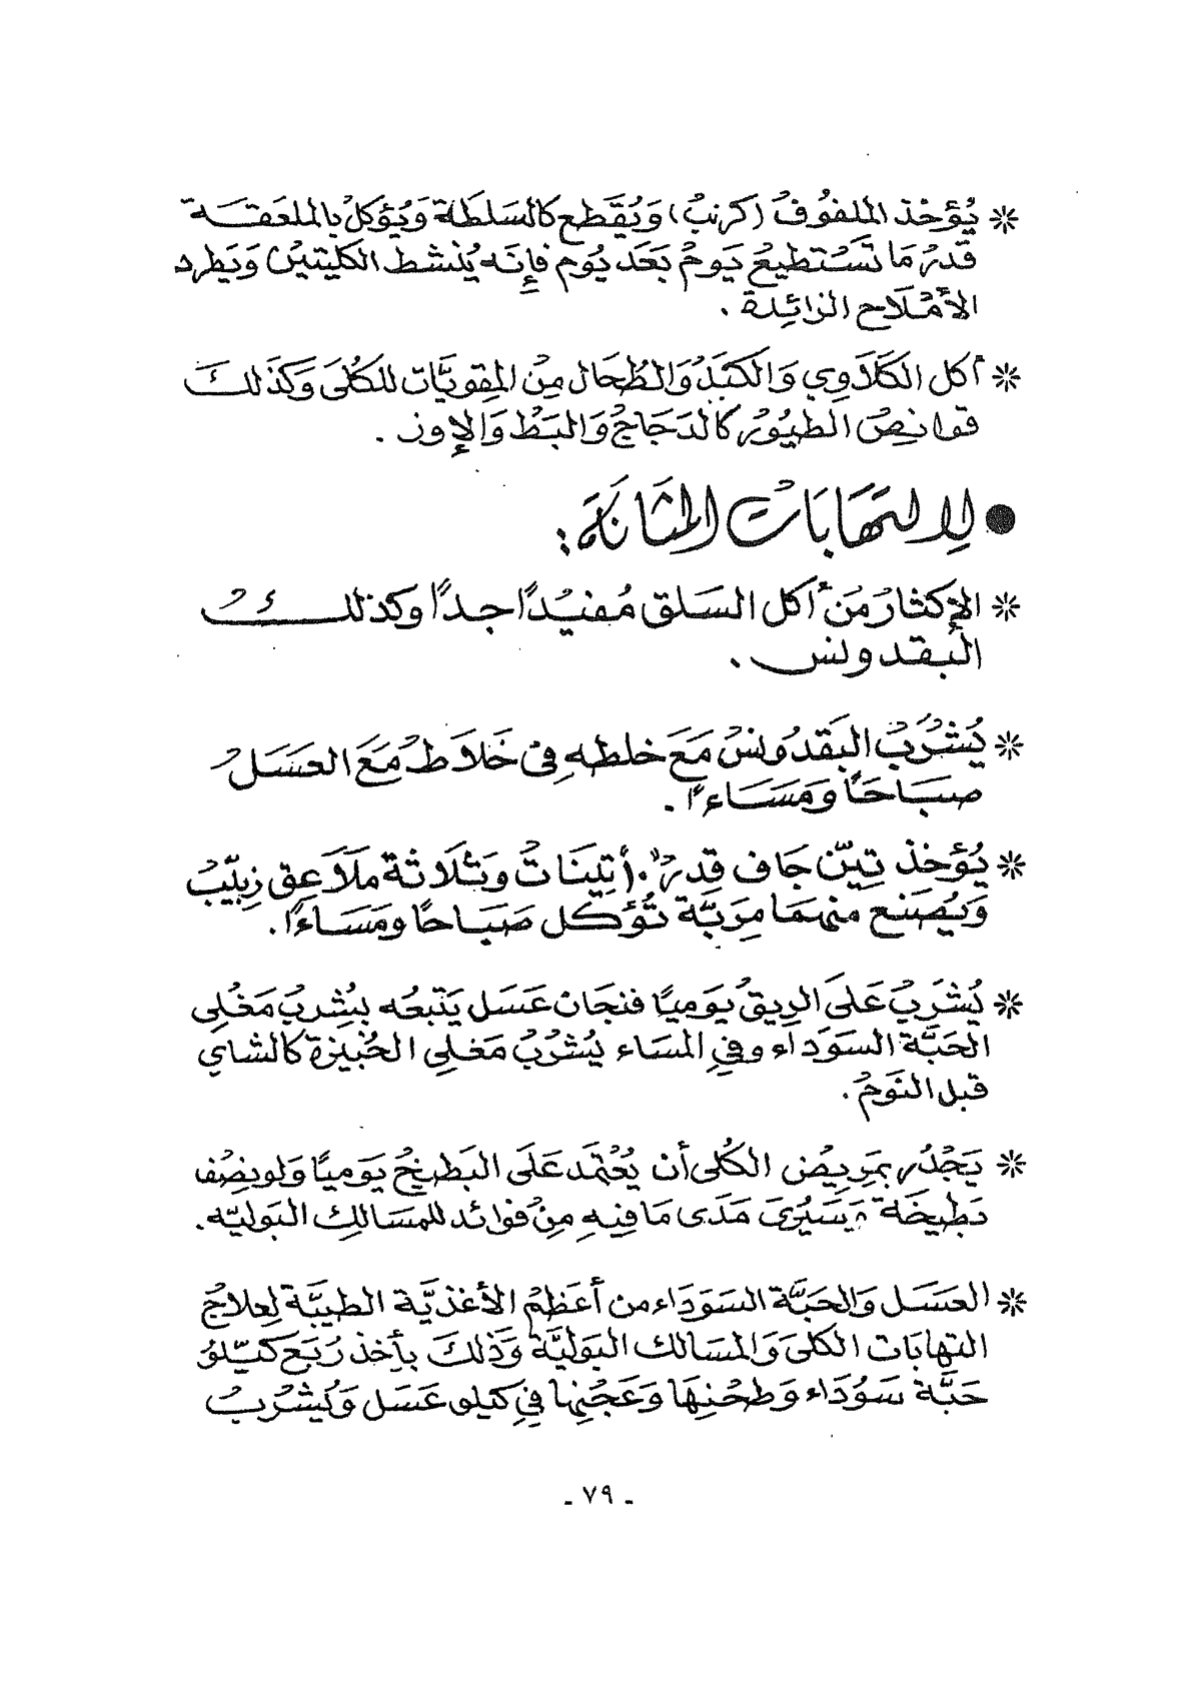 * يُؤخذ الملفوف (كرنب) وَيُقَطع كالسَلطة وَيُؤكل بالملعقة
قدر مَا تَسْتطيع يَوم بَعَد يَوم فإنَه يُنشط الكليتين وَيَطرد
الأمْلاح الزائِدة .
* أكل الكَلَاوِي وَالكَبَد وَالطُحَال مِن المِقويَّات للكُلىَ وَكذَلكَ
قوانِص الطيُور كالدَجَاج وَالبَط وَالإوز .
● لِالتهَابَات المثَانَة :
* الإكثار مَن أكل السَلق مُفيْدًا جدًا وكذلك
البقدونس .
* يُشْرَب البَقدُونس مَعَ خلطه في خَلاَط مَعَ العسَل
صبَاحًا وَمَسَاءً .
* يُؤخذ تِيّن جَاف قِدر ١٠ تِينَات وَثلَاثة ملَاعِق زبِيّب
وَيُصَنع منهمَا مِرَبَّة تُؤكل صَبَاحًا ومَسَاءًا .
* يُشرَب عَلىَ الرِيق يَوميًا فنجَان عَسَل يَتبعُه بشِرب مَغْلِي
الحَبَّة السَوَداء وفي المسَاء يُشْرَب مَغلي الخُبيزة كالشاي
قبل النَوم .
* يَجْدُر بمَرِيض الكُلى أن يُعْتمَد عَلَى البَطيخ يَوميًا وَلو بنِصُف
بَطِيخَة وَسَيُرىَ مَدَى مَا فِيهِ مِن فوائد للمسَالِك البَوليّه .
* العسَل وَالحَبَّة السَوَدَاء من أعَظم الأغذيَّة الطيبَّة لِعلاج
التهابَات الكلىَ وَالمسَالك البَوليَّة وَذلكَ بأخذ رُبَع كيّلوُ
حَبَّة سَوُدَاء وَطحْنِهَا وَعَجْنِها في كيلو عَسَل وَيُشْرَب
- ٧٩ -